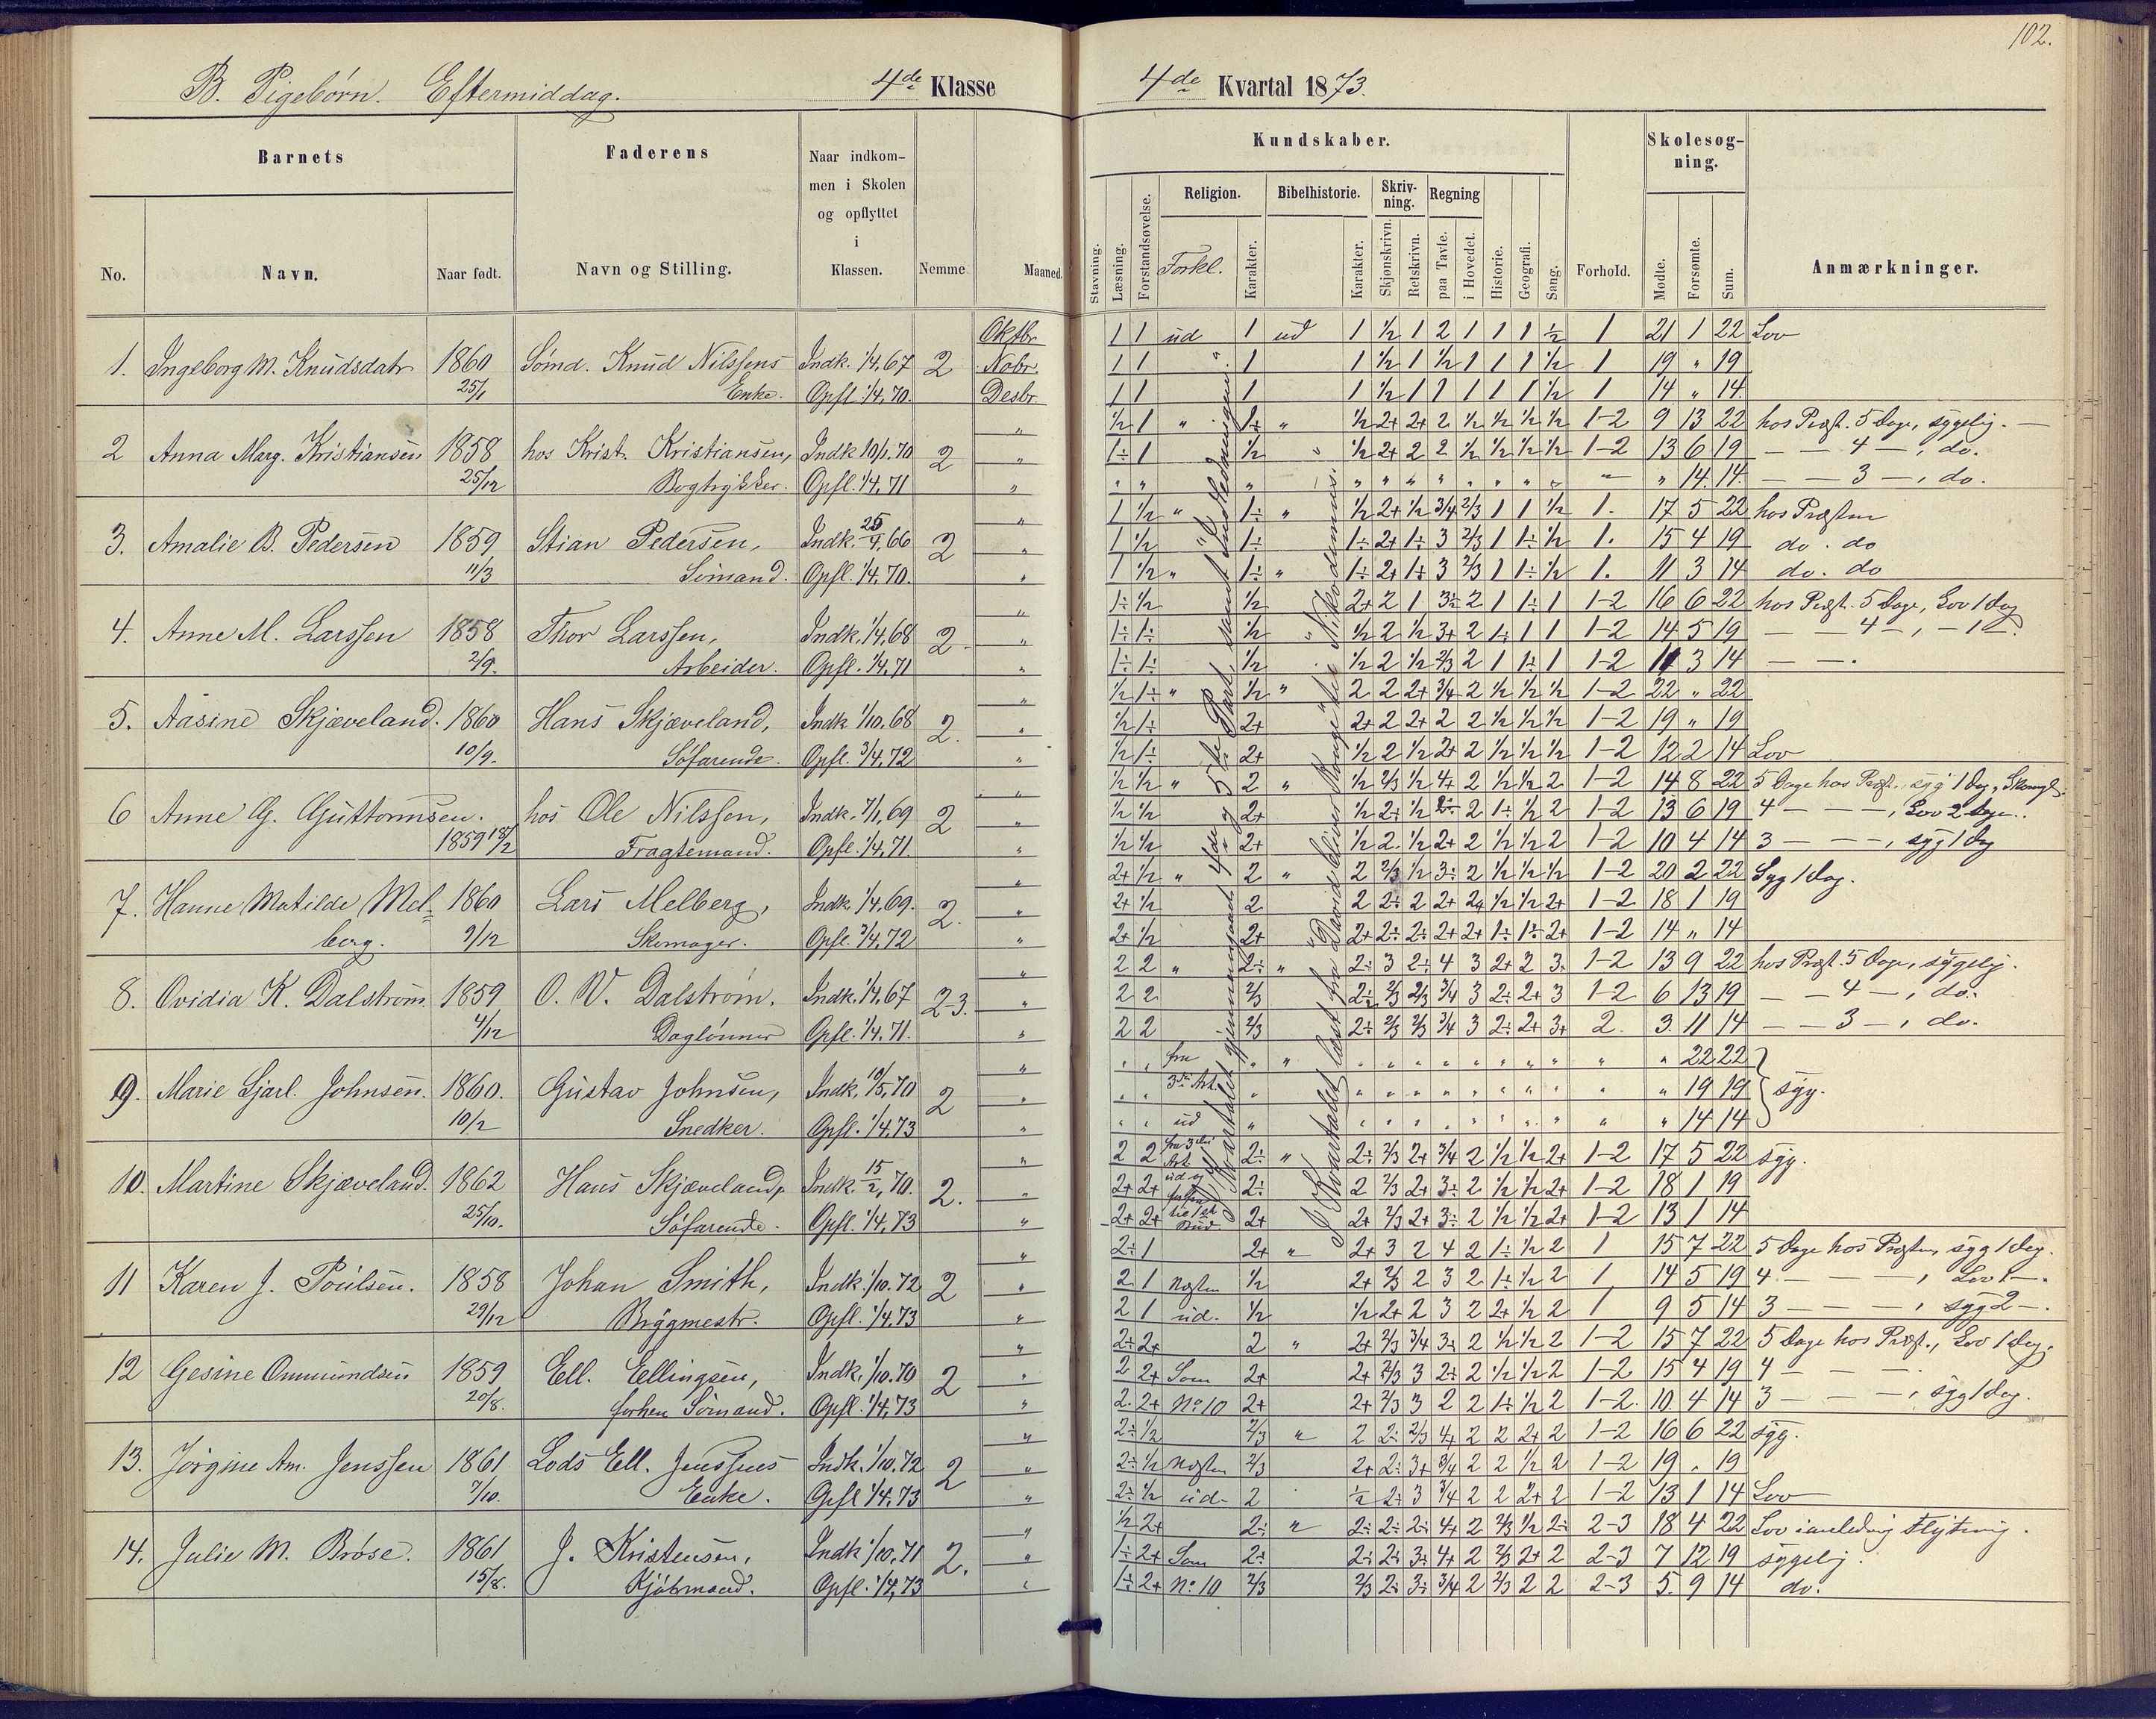 102.
B. Pigebörn. Eftermiddag. 4de Klasse
4de Kvartal 1873.
Barnets
Faderens
Naar indkommen i Skolen og opflyttet i Klassen.
Nemme
Maaned.
No. Navn. Naar født. Navn og Stilling.
Kundskaber.
Skolesøgning.
Stavning. Læsning. Forstandsøvelse. Religion. Forkl. Karakter. Bibelhistorie. Karakter. Skrivning. Skjønskrivn. Retskrivn. Regning paa Tavle. i Hovedet. Historie. Geografi. Sang. Forhold. Mødte. Forsømte. Sum. Anmærkninger.
1. Ingeborg M. Knudsdatr 1860 25/1 Sömd. Knud Nilssens Enke. Indk. 1/4,67 Opfl. 1/4,70. 2
Oktbr 1 1 ud 1 ud 1 1/2 1 2 1 1 1 1/2 1 21 1 22 Lov
Nobr. 1 1 " 1 1 1/2 1 1/2 1 1 1 1/2 1 19 " 19
Desbr. 1 1 1 1 1/2 1 1 1 1 1 1/2 1 14 " 14.
2 Anna Marg. Kristiansen 1858 25/12 hos Krist. Kristiansen, Bogtrykker. Indk 10/1.70 Opfl. 1/4,71 2
" 1/2 1 " 1÷ " 1/2 2+ 2+ 2 1/2 1/2 1/2 1/2 1-2 9 13 22 hos Præst. 5 Dage, sygelig.
" 1÷ 1 1/2 " 1/2 2+ 2 2 1/2 1/2 1/2 1/2 1-2 13 6 19 — — 4 —, do.
" " " " " " " " " " " " " " 14. 14. — — 3 —, do.
3. Amalie B. Pedersen 1859 11/3 Stian Pedersen, Sömand. Indk. 25/4,66 Opfl. 1/4.70. 2
" 1 1/2 " 1÷ " 1/2 2+ 1/2 3/4 2/3 1 1 1/2 1. 17 5 22 hos Præsten
" 1 1/2 " 1÷ 1÷ 2+ 1÷ 3 2/3 1 1÷ 1/2 1. 15 4 19 do. do
" 1 1/2 " 1÷ " 1÷ 2+ 1÷ 3 2/3 1 1÷ 1/2 1. 11 3 14 do. do
4. Anne M. Larssen 1858 2/9. Thor Larssen, Arbeider. Indk. 1/4,68 Opfl. 1/4,71 2.
" 1÷ 1/2 1/2 2+ 2 1 3÷ 2 1 1÷ 1 1-2 16 6 22 hos Præst. 5 Dage, Lov 1 Dag
" 1÷ 1÷ 1/2 " 1/2 2 1/2 3+ 2 1÷ 1 1 1-2 14 5 19 — — 4 —, — 1 —.
" 1÷ 1÷ 1/2 1/2 2 1/2 2/3 2 1 1÷ 1 1-2 11 3 14 — — .
5. Aasine Skjæveland. 1860 10/9. Hans Skjæveland, Söfarende. Indk 1/10,68 Opfl. 3/4,72 2.
" 1/2 1÷ " 1/2 " 2 2 2+ 3/4 2 1/2 1/2 1/2 1-2 22 " 22
" 1/2 1÷ 2+ 2+ 2 2+ 2 2 1/2 1/2 1/2 1-2 19 " 19
" 1/2 1÷ 2+ 1/2 2 1/2 2+ 2 1/2 1/2 1/2 1-2 12 2 14 Lov
6 Anne G. Guttormsen. 1859 18/2 hos Ole Nilssen, Fragtemand. Indk. 7/1,69 Opfl. 1/4,71. 2
" 1/2 1/2 " 2 " 1/2 2/3 1/2 4+ 2 1/2 1/2 2 1-2 14 8 22 5 Dage hos Præst., syg 1 Dag,
" 1/2 1/2 2+ 1/2 2÷ 1/2 2÷ 2 1÷ 1/2 2 1-2 13 6 19 4 — — —, Lov 2 Dage.
" 1/2 1/2 2+ 1/2 2. 1/2 2+ 2 1/2 1/2 2 1-2 10 4 14 3 — — —, syg 1 Dag
7. Hanne Matilde Melberg. 1860 9/12 Lars Melberg, Skomager. Indk. 1/4,69. Opfl. 3/4,72 2.
" 2+ 1/2 " 2 " 2 2/3 1/2 3÷ 2 1/2 1/2 1/2 1-2 20 2 22 Syg 1 Dag.
" 2+ 1/2 2 2 2÷ 2 2+ 2+ 1/2 1/2 2+ 1-2 18 1 19
" 2+ 1/2 2+ 2+ 2÷ 2÷ 2+ 2+ 1÷ 1÷ 2+ 1-2 14 " 14
8. Ovidia K. Dalström. 1859 4/12 O. W. Dalström. Daglönner Indk. 1/4,67 Opfl. 1/4.71. 2-3.
" 2 2 " 2÷ " 2÷ 3 2÷ 4 3 2+ 2 3. 1-2 13 9 22 hos Præst. 5 Dage, sygelig.
" 2 2 2/3 2÷ 2/3 2/3 3/4 3 2÷ 2+ 3 1-2 6 13 19 — — 4 —, do.
" 2 2 2/3 2÷ 2/3 2/3 3/4 3 2÷ 2+ 3+ 2. 3. 11 14 — — 3 —, do.
9. Marie Sjarl. Johnsen. 1860. 10/2 Gustav Johnsen, Snedker. Indk. 10/5,70 Opfl. 1/4.73 2
" " " fra " " " " " " " " " " " " 22 22
" " " 3die Art. " " " " " " " " " " " 19 19 syg.
" " " ud " " " " " " " " " " " 14 14
10. Martine Skjæveland. 1862 25/10. Hans Skjæveland, Söfarende. Indk. 15/2,70. Opfl. 1/4,73 2.
" 2 2 fra 3die Art 2÷ " 2÷ 2/3 2+ 3/4 2 1/2 1/2 2+ 1-2 17 5 22 syg.
" 2+ 2+ ud og 2÷ 2 2/3 2+ 3÷ 2 1/2 1/2 2+ 1-2 18 1 19
" 2+ 2+ til 1ste Bud 2+ 2+ 2/3 2+ 3÷ 2 1/2 1/2 2+ 1-2 13 1 14
11 Karen J. Poulsen. 1858 29/12 Johan Smith, Bryggmestr. Indk. 1/10.72 Opfl. 1/4.73 2
" 2÷ 1 2+ " 2+ 3 2 4 2 1÷ 1/2 2 1 15 7 22 5 Dage hos Præsten, syg 1 Dag.
" 2 1 Næsten 1/2 2+ 2/3 2 3 2 1÷ 1/2 2 1 14 5 19 4 — — —, Lov 1 —.
" 2 1 ud. 1/2 1/2 2+ 2 3 2 2+ 1/2 2 1 9 5 14 3 — — —, syg 2 —.
12 Gesine Ommundsen 1859 20/8. Ell. Ellingsen, forhen Sömand. Indk. 1/10.70 Opfl. 1/4,73 2
" 2÷ 2+ 2 " 2+ 2/3 3/4 3÷ 2 1/2 1/2 2 1-2 15 7 22 5 Dage hos Præst., Lov 1 Dag.
" 2 2+ Som 2+ 2+ 2/3 3 2÷ 2 1/2 1/2 2 1-2 15 4 19 4 — — —
" 2. 2+ No 10 2+ 2+ 2/3 3 2 2 1÷ 1/2 2 1-2. 10. 4 14 3 — — —, syg 1 Dag.
13. Jörgine Am. Jenssen 1861 7/10. Lods Ell. Jenssens Enke. Indk. 1/10.72 Opfl 1/4,73 2
" 2÷ 1/2 2/3 " 2 2÷ 2/3 4+ 2 2 2+ 2 1-2 16 6 22 syg.
" 2÷ 1/2 Næsten 2/3 2+ 2÷ 3+ 3/4 2 2 1/2 2 1-2 19 " 19
" 2÷ 1/2 ud. 2 1/2 2+ 3 3/4 2 2 2+ 2 1-2 13 1 14 Lov
14. Julie M. Bröse. 1861 15/8. J. Kristensen, Kjöbmand. Indk 1/10,71 Opfl. 1/4,73 2.
" 1/2 2+ 2÷ " 2÷ 2÷ 2÷ 4+ 2 2/3 1/2 2÷ 2-3 18 4 22 Lov i anledning Flytning.
" 1÷ 2+ Som 2÷ 2÷ 2÷ 3÷ 4+ 2 2/3 2+ 2 2-3 7 12 19 sygelig.
" 1÷ 2+ No 10 2/3 2/3 2÷ 3÷ 3/4 2 2/3 2 2 2-3 5. 9 14 do.
I Kvartalet gjennemgaaet 4de og 5te Part samt Indledningen.
I Kvartalet læst fra David bliver Konge til Nikodemus.